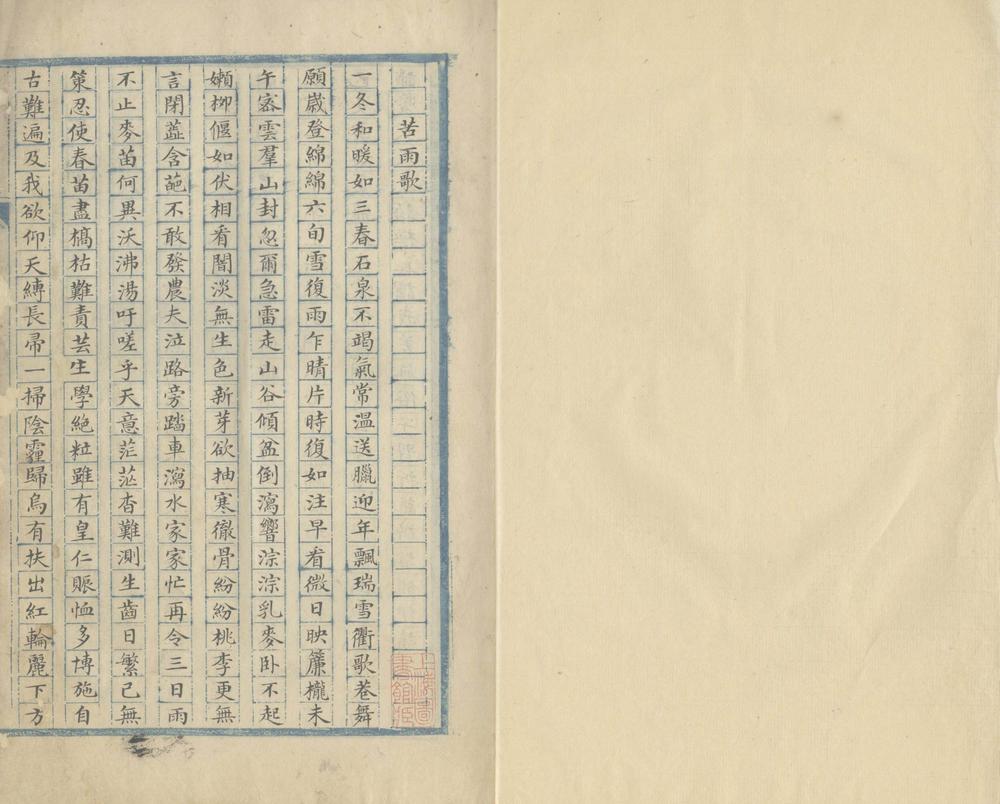 苦雨歌
一冬和暖如三春石泉不竭氣常溫送臘迎年飄瑞雪衢歌巷舞
願歲登綿綿六旬雪復雨乍晴片時復如注早看微日映簾櫳未
午密雲羣山封忽爾急雷走山谷傾盆倒瀉響淙淙乳麥卧不起
嫩柳偃如伏相看闇淡無生色新芽欲抽寒徹骨紛紛桃李更無
言閉蕋含葩不敢發農夫泣路旁踏車瀉水家家忙再令三日雨
不止麥苗何異沃沸湯吁嗟乎天意茫茫杳難測生齒日繁已無
策忍使春苗盡槁枯難責芸生學絶粒雖有皇仁賑恤多博施自
古難遍及我欲仰天縛長帚一掃陰霾歸烏有扶出紅輪麗下方
上海圖
書館藏